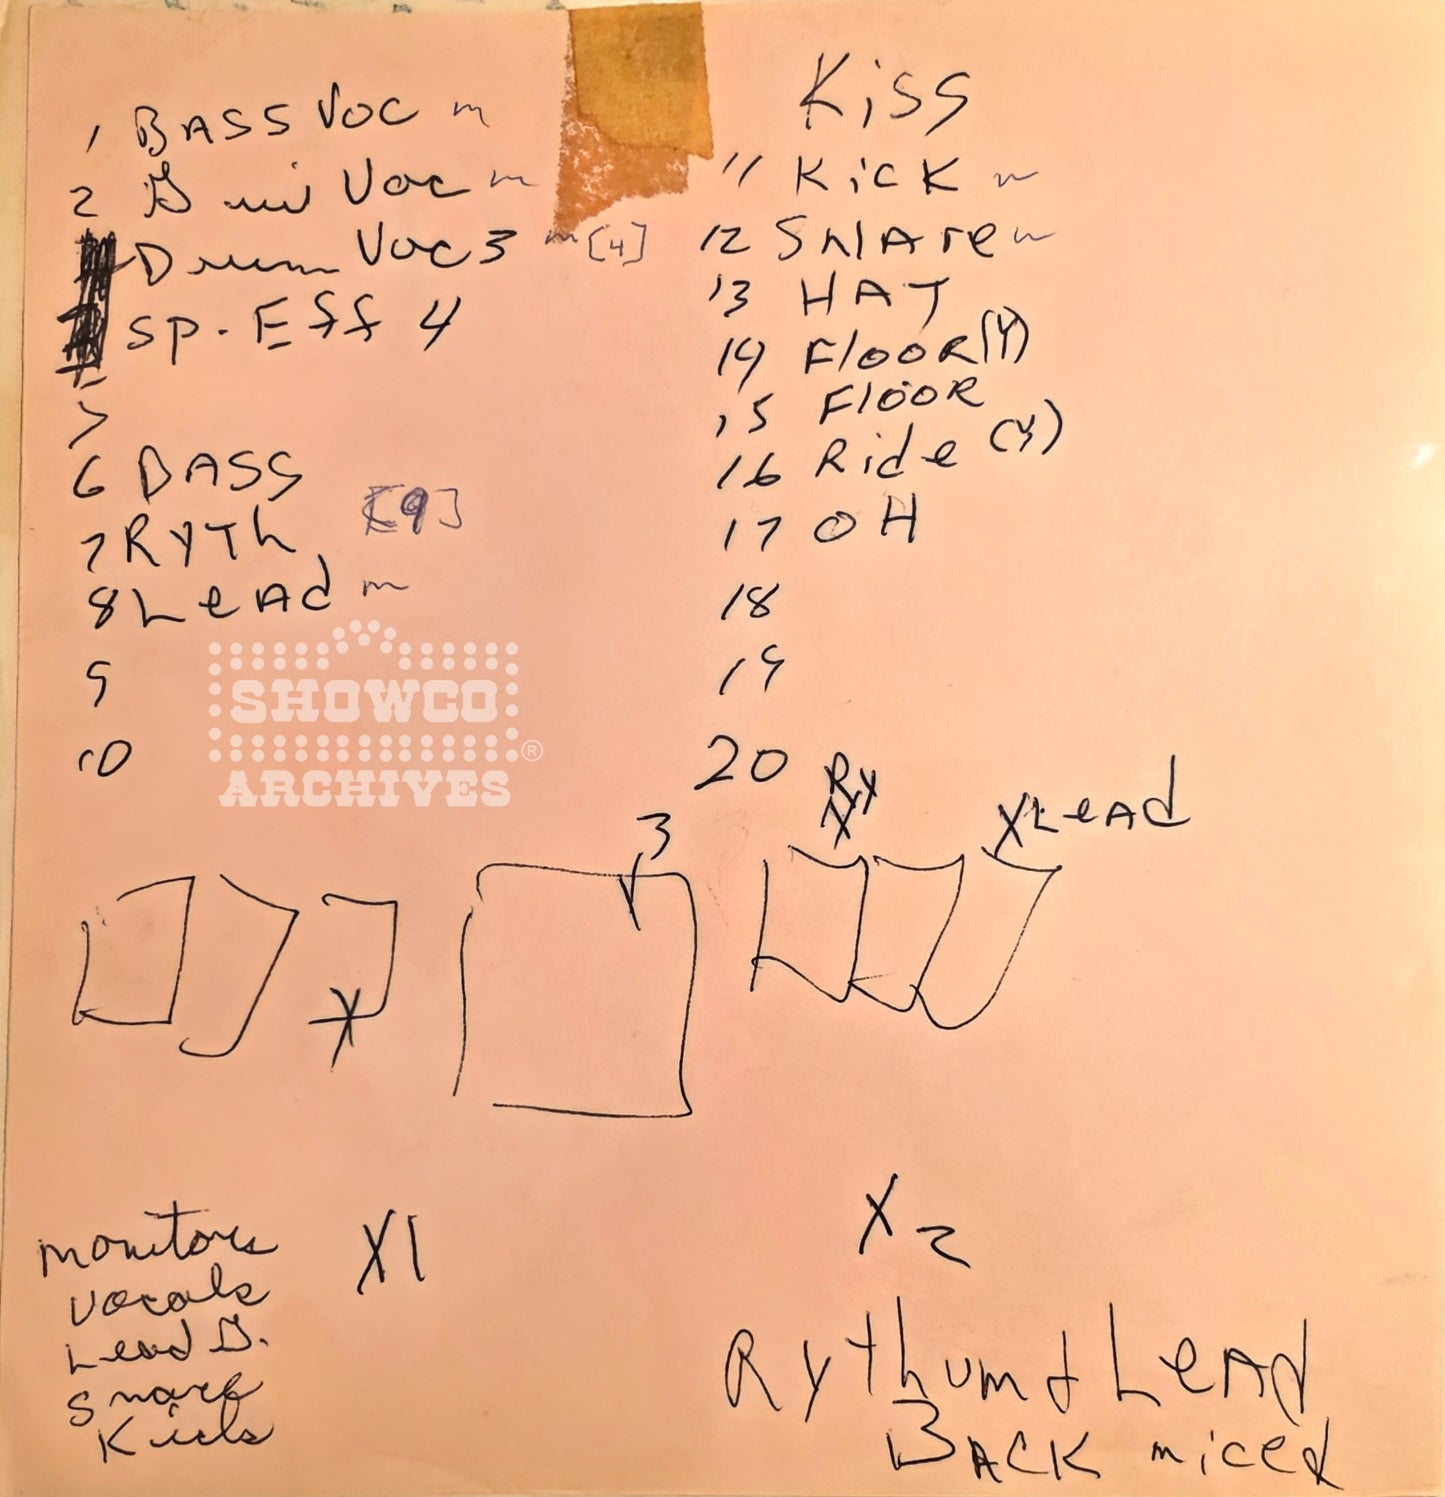 Kiss
1 BASS VOC m
2 G Voc m
Drum Voc 3 m [4]
SP. Eff 4
5
6 BASS
7 RYTh [9]
8 LeAd m
9
10
11 KicK m
12 SNAre m
13 HAT
14 FlOOR (Y)
15 FlOOR
16 Ride (Y)
17 OH
18
19
20
SHOWCO
®
ARCHIVES
Ry
X
X LeAd
3
X
monitors
Vocals
Lead G.
Snare
Kick
X1
X2
Rythum + LeAd
BACK miced